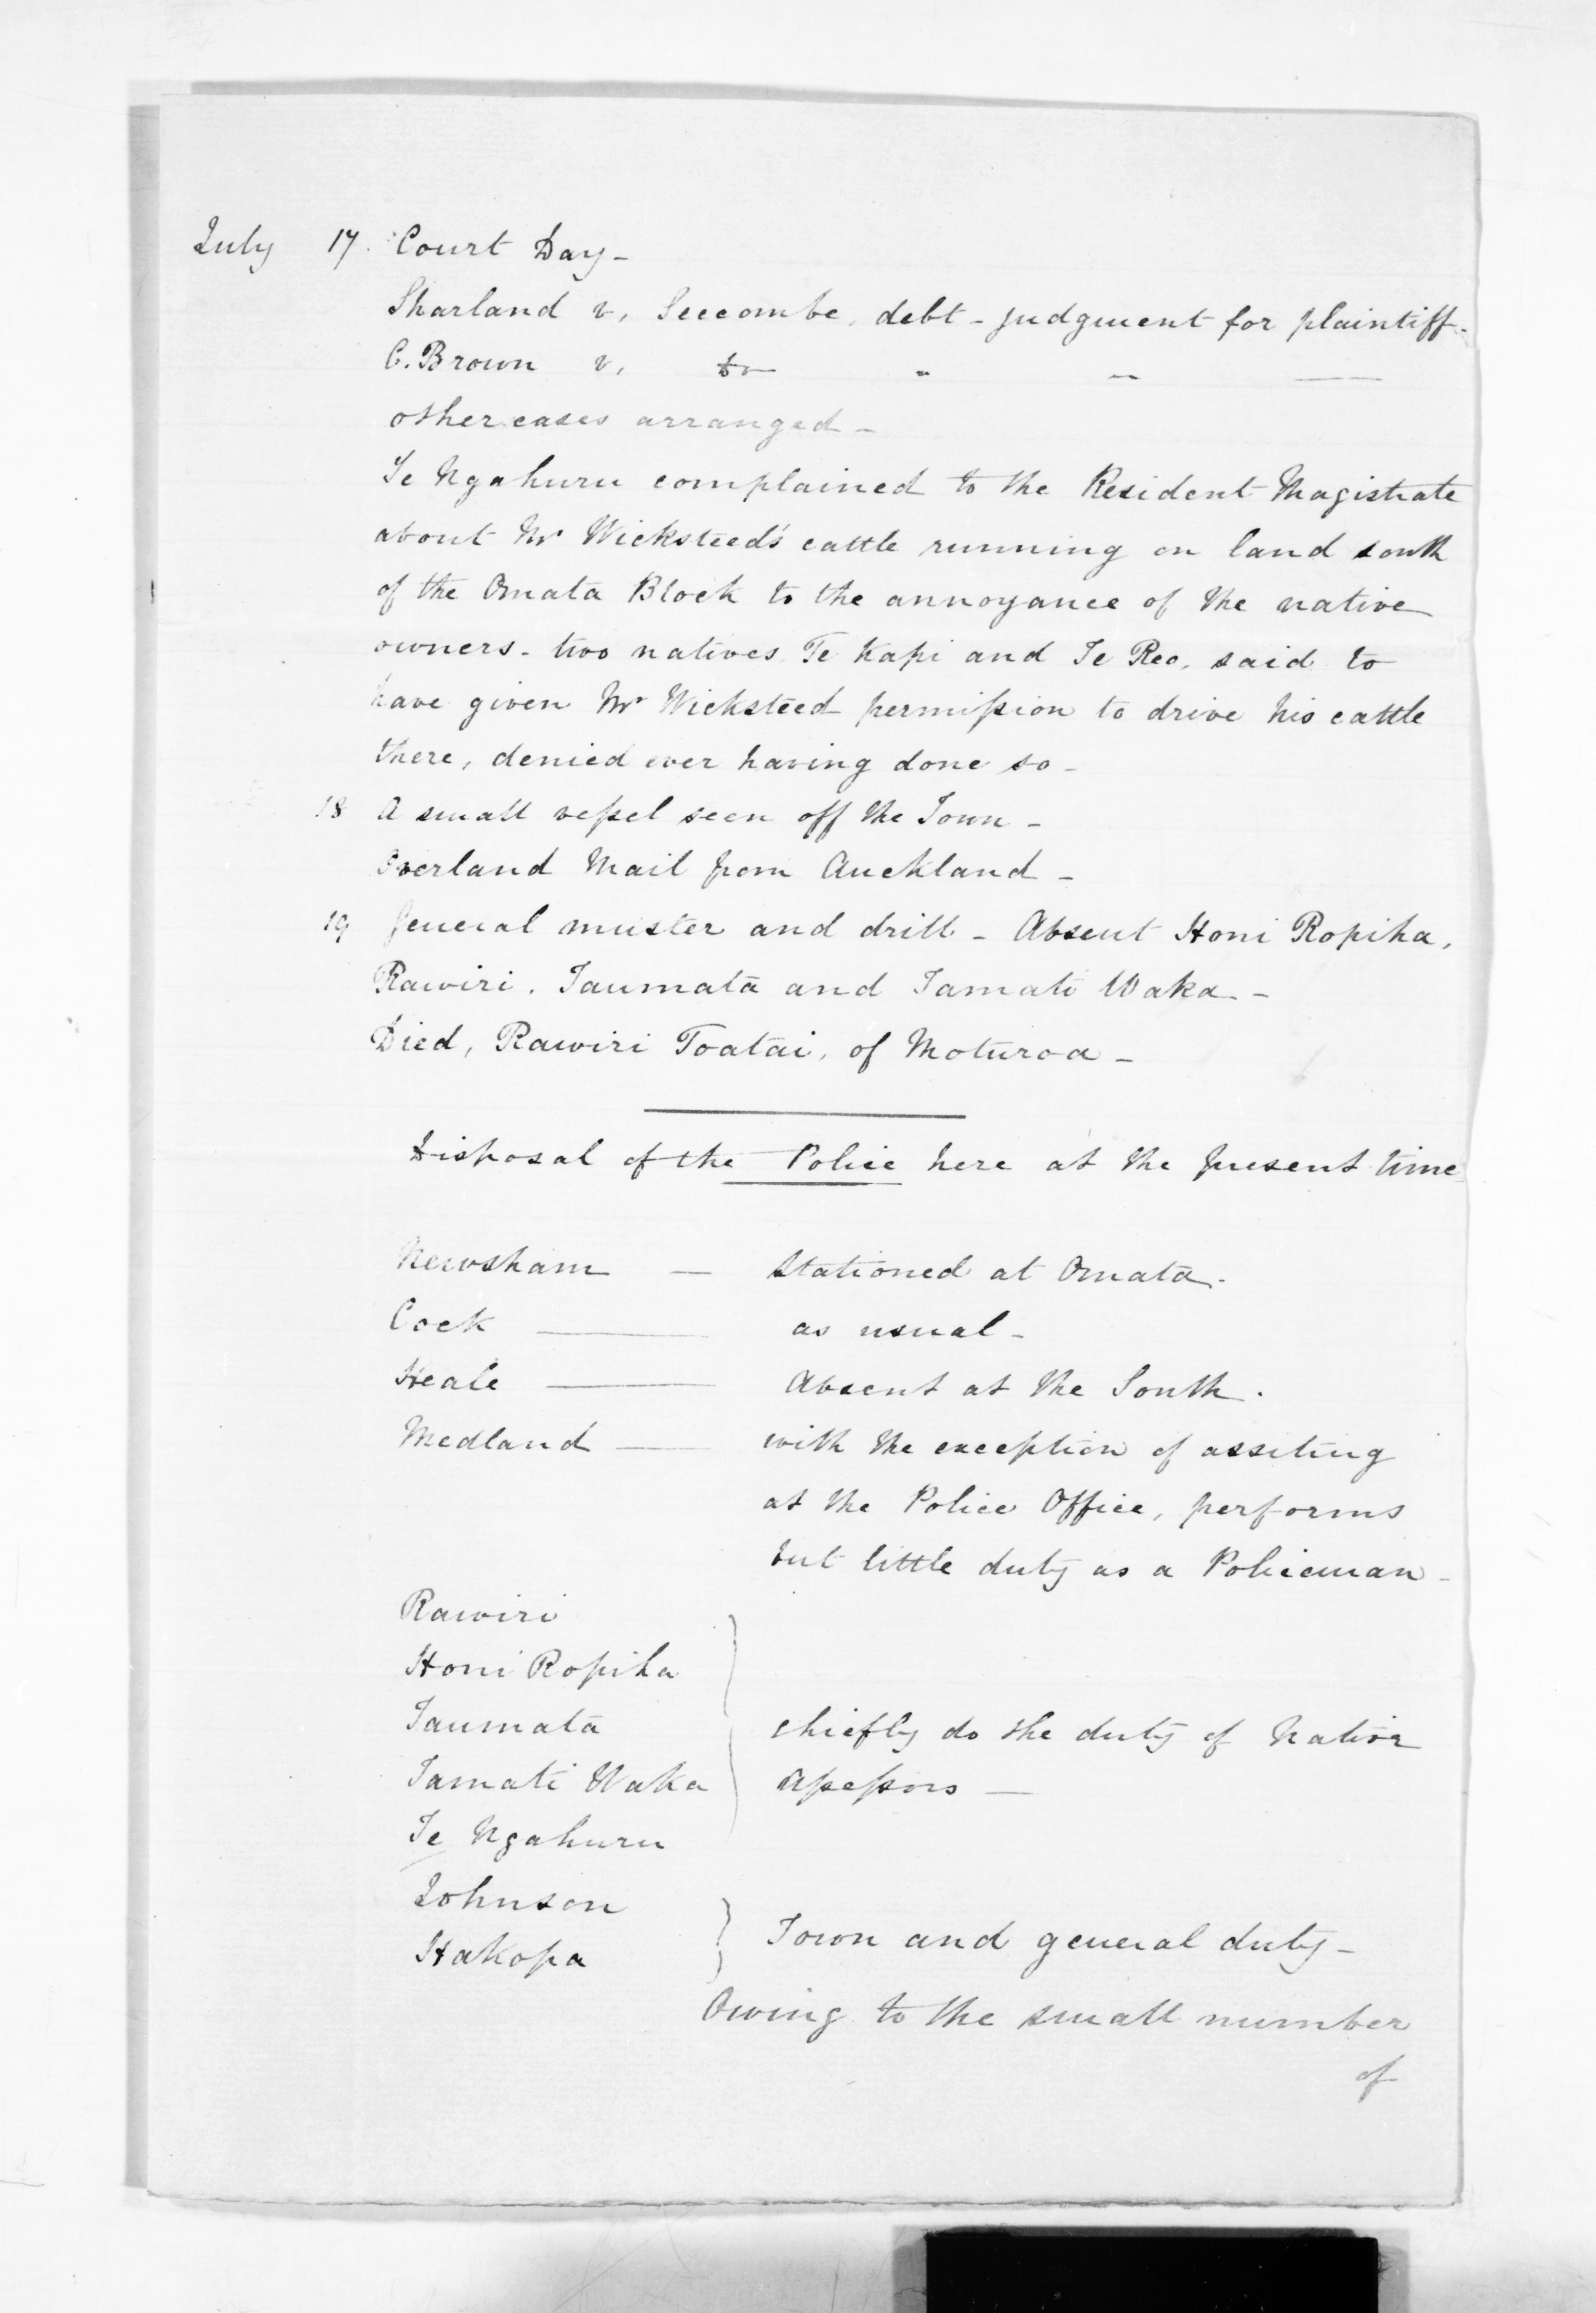 July 17. Court Day -
Sharland v. Seccombe, debt - judgment for plaintiff -
C. Brown v. do " " —
other cases arranged -
Te Ngahuru complained to the Resident Magistrate
about Mr Wicksteed's cattle running on land south
of the Omata Block to the annoyance of the native
owners - two natives Te Kapi and Te Reo, said to
have given Mr Wicksteed permission to drive his cattle
there, denied ever having done so -
18 A small vessel seen off the Town -
Overland Mail from Auckland -
19 General muster and drill - Absent Honi Ropiha,
Rawiri, Taumata and Tamati Waka -
Died, Rawiri Toatai, of Moturoa -
Disposal of the Police here at the present time
Newsham — Stationed at Omata -
Cock — as usual -
Heale — Absent at the South.
Medland — with the exception of assiting
at the Police Office, performs
but little duty as a Policeman -
Rawiri
Honi Ropiha
Taumata chiefly do the duty of Native
Tamati Waka Assessors —
Te Ngahuru
Johnson
Hakopa } Town and general duty -
Owing to the small number
of